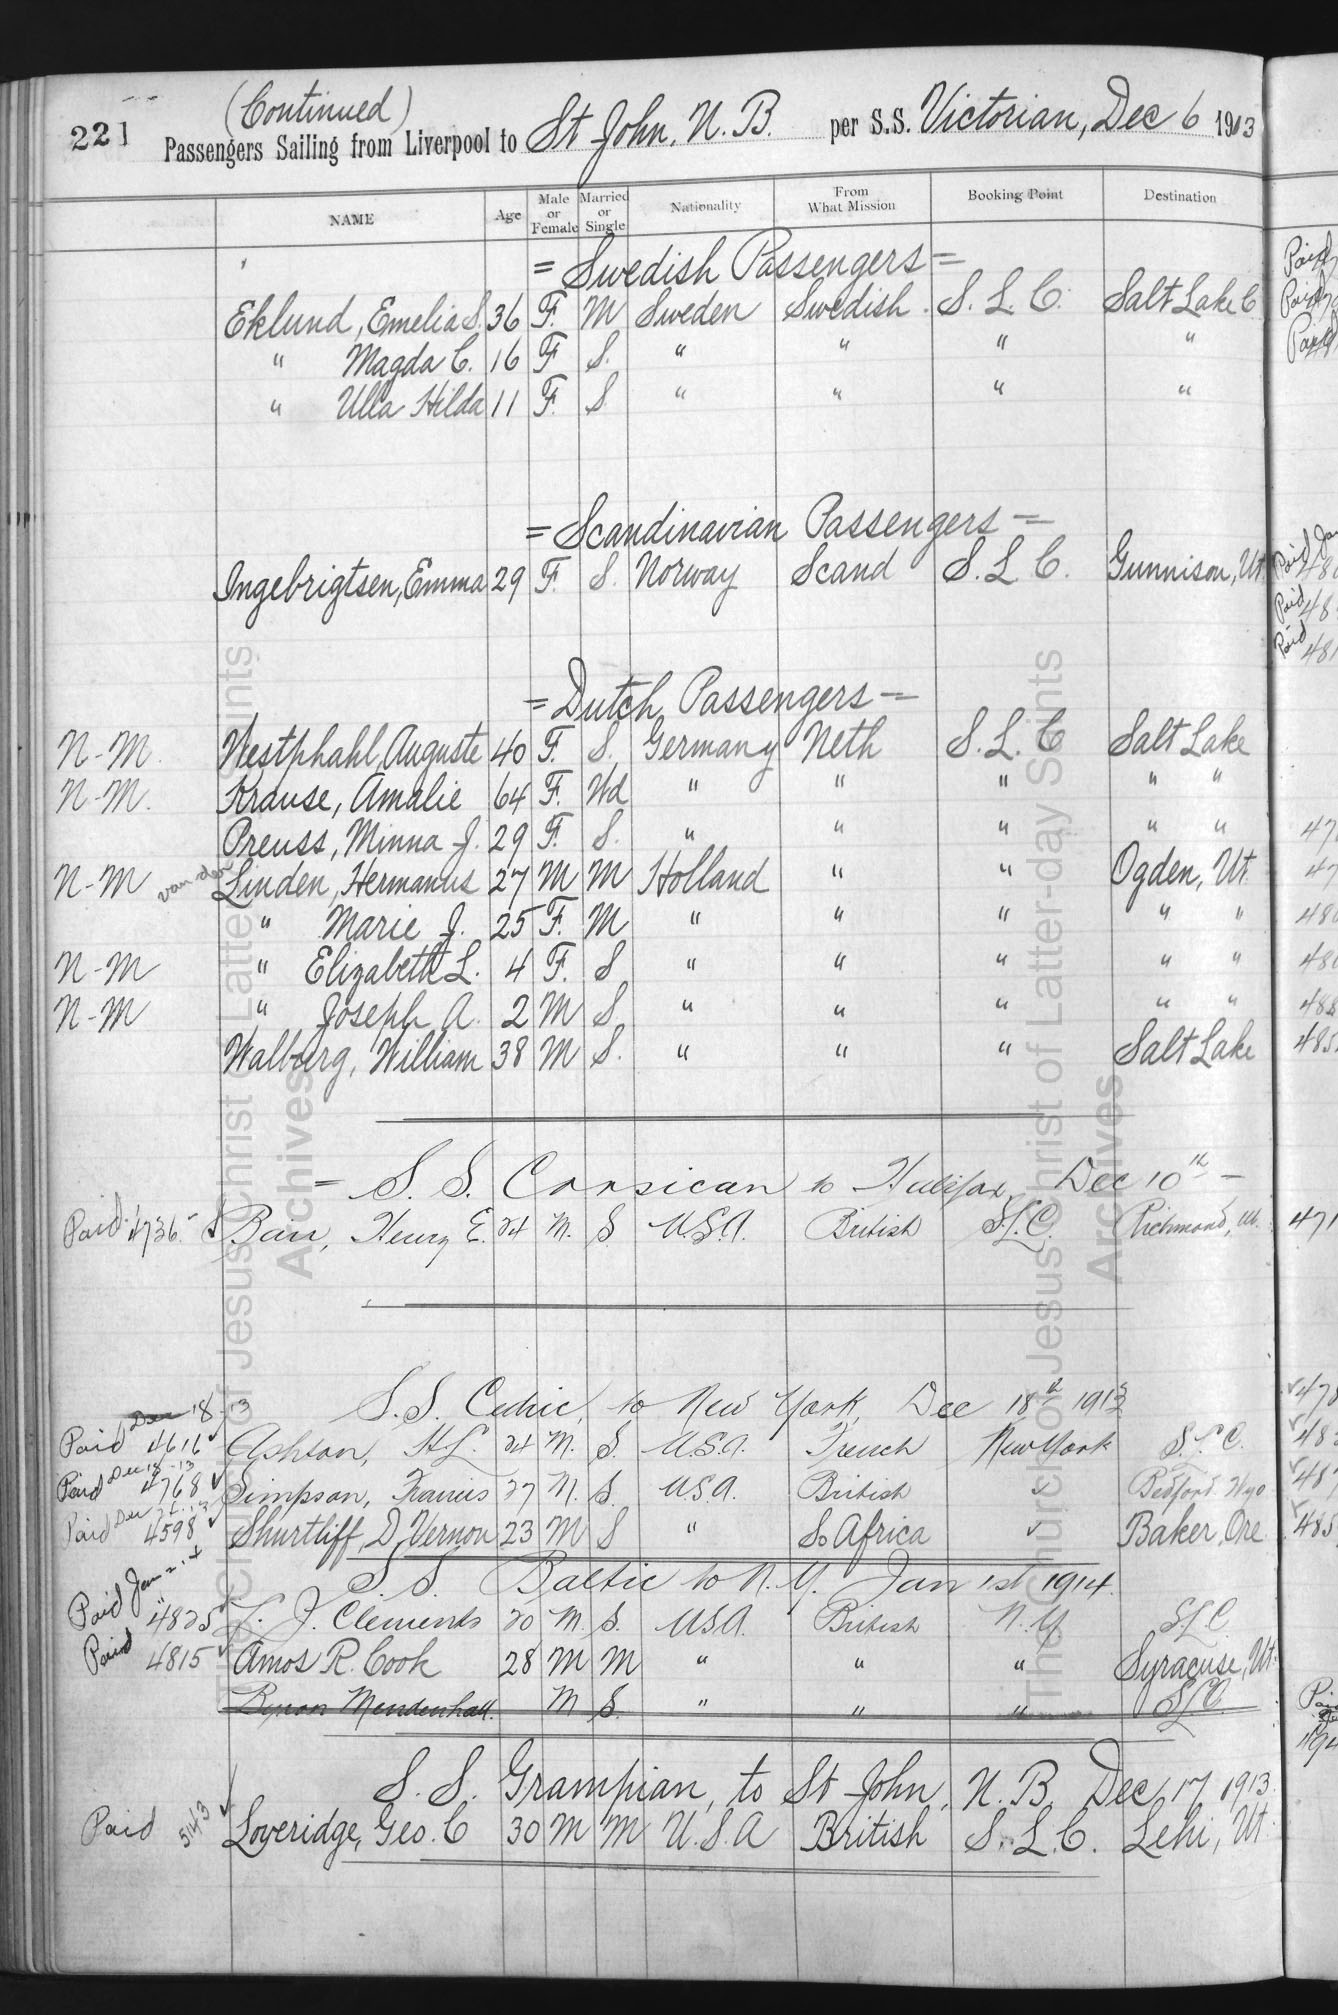 221 (Continued)
Passengers Sailing from Liverpool to St John, N. B. per S.S. Victorian, Dec 6 1913
NAME Age Male or Female Married or Single Nationality From What Mission Booking Point Destination
= Swedish Passengers =
Eklund, Emelia S. 36 F. M Sweden Swedish. S. L. C. Salt Lake C
" Magda C. 16 F S. " " " "
" Ulla Hilda 11 F. S. " " " "
= Scandinavian Passengers =
Ingebrigtsen, Emma 29 F. S. Norway Scand S. L. C. Gunnison, Ut.
= Dutch Passengers =
N-M. Westphahl, Auguste 40 F. S. Germany Neth S. L. C Salt Lake
N-M. Krause, Amalie 64 F. Wd " " " " "
Preuss, Minna J. 29 F. S. " " " " "
N-M van-den Linden, Hermanus 27 M M Holland " " Ogden, Ut.
" Marie J. 25 F. M " " " " "
N-M " Elizabeth L. 4 F. S " " " " "
N-M " Joseph A. 2 M S. " " " " "
Walberg, William 38 M S. " " " Salt Lake
= S. S. Corsican to Halifax, Dec 10th -
Paid 4736 Bair, Henry E. 24 M. S U.S.A. British S.L.C. Richmond, Ut.
S.S. Cedric, to New York, Dec 18th 1913
Paid Dec 18-13 4616 Ashton, H.L. 24 M. S. U.S.A. French New York S.L.C.
Paid Dec 18-13 4768 Simpson, Francis 27 M. S. U.S.A. British " Bedford. Wyo
Paid Dec 4598 Shurtliff, D. Vernon 23 M S " So Africa " Baker, Ore
S. S. Baltic to N.Y. Jan 1st 1914.
Paid Jan 4825 J. Clements 20 M. S. U.S.A. British N.Y S.L.C
Paid 4815 Amos R. Cook 28 M M " " " Syracuse, Ut.
Byron Mendenhall. M S. " " " S.L.C.
S. S. Grampian, to St John, N. B. Dec 17 1913.
Paid 5143 Loveridge, Geo. C 30 M M U.S.A British S. L. C. Lehi, Ut.
The Church of Jesus Christ of Latter-day Saints
Archives
The Church of Jesus Christ of Latter-day Saints
Archives